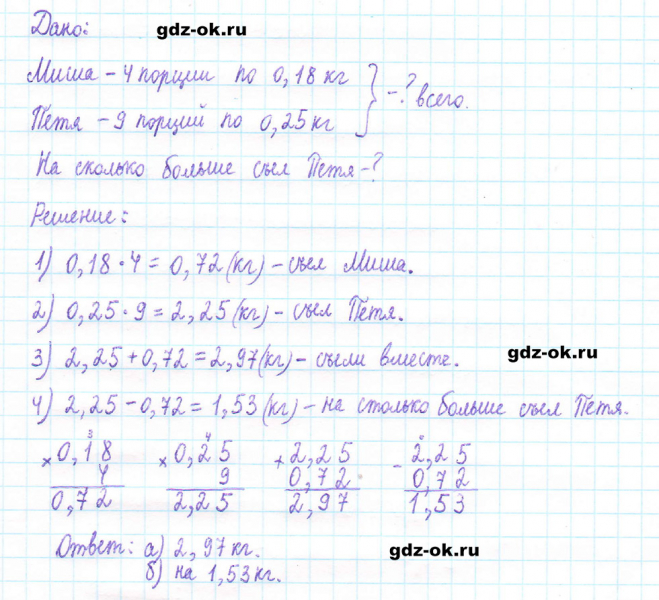 Дано:
gdz-ok.ru
Миша – 4 порции по 0,18 кг
Петя – 9 порций по 0,25 кг } – ? всего.
На сколько больше съел Петя – ?
Решение:
1) 0,18 · 4 = 0,72 (кг) – съел Миша.
2) 0,25 · 9 = 2,25 (кг) – съел Петя.
3) 2,25 + 0,72 = 2,97 (кг) – съели вместе.
gdz-ok.ru
4) 2,25 – 0,72 = 1,53 (кг) – на столько больше съел Петя.
3 4
× 0,18 × 0,25 + 2,25 – 2,25
4 9 0,72 0,72
0,72 2,25 2,97 1,53
Ответ: а) 2,97 кг.
gdz-ok.ru
б) на 1,53 кг.